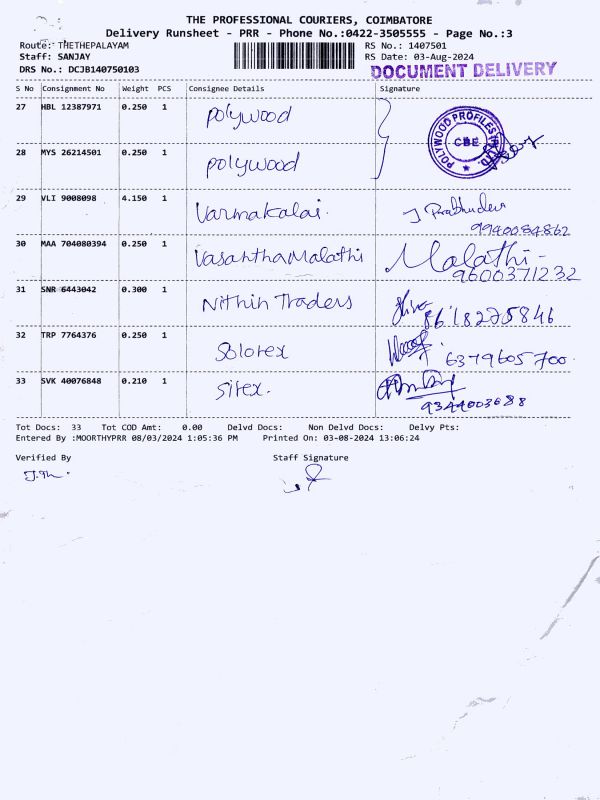 THE PROFESSIONAL COURIERS, COIMBATORE
Delivery Runsheet - PRR - Phone No.:0422-3505555 - Page No.:3
Route: THETHEPALAYAM RS No.: 1407501
Staff: SANJAY RS Date: 03-Aug-2024
DRS No.: DCJB140750103 DOCUMENT DELIVERY
S No Consignment No Weight PCS Consignee Details Signature
27 HBL 12387971 0.250 1 polywood
POLYWOOD PROFILES
CBE
28 MYS 26214501 0.250 1 polywood
29 VLI 9008098 4.150 1 Varmakalai. J Prabhudeva
9940084862
30 MAA 704080394 0.250 1 VasanthaMalathi Malathi-
9600371232
31 SNR 6443042 0.300 1 Nithin Traders
8618275846
32 TRP 7764376 0.250 1 Solorex 6379605700.
33 SVK 40076848 0.210 1 sitex.
9344003688
Tot Docs: 33 Tot COD Amt: 0.00 Delvd Docs: Non Delvd Docs: Delvy Pts:
Entered By :MOORTHYPRR 08/03/2024 1:05:36 PM Printed On: 03-08-2024 13:06:24
Verified By Staff Signature